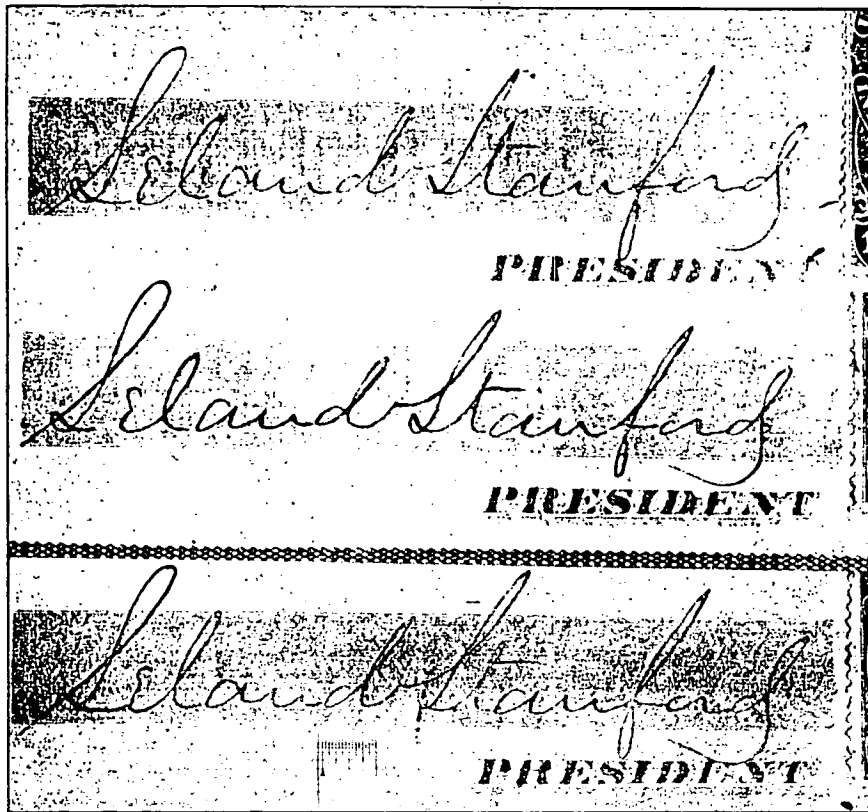 Leland Stanford
PRESIDENT
Leland Stanford
PRESIDENT
Leland Stanford
PRESIDENT